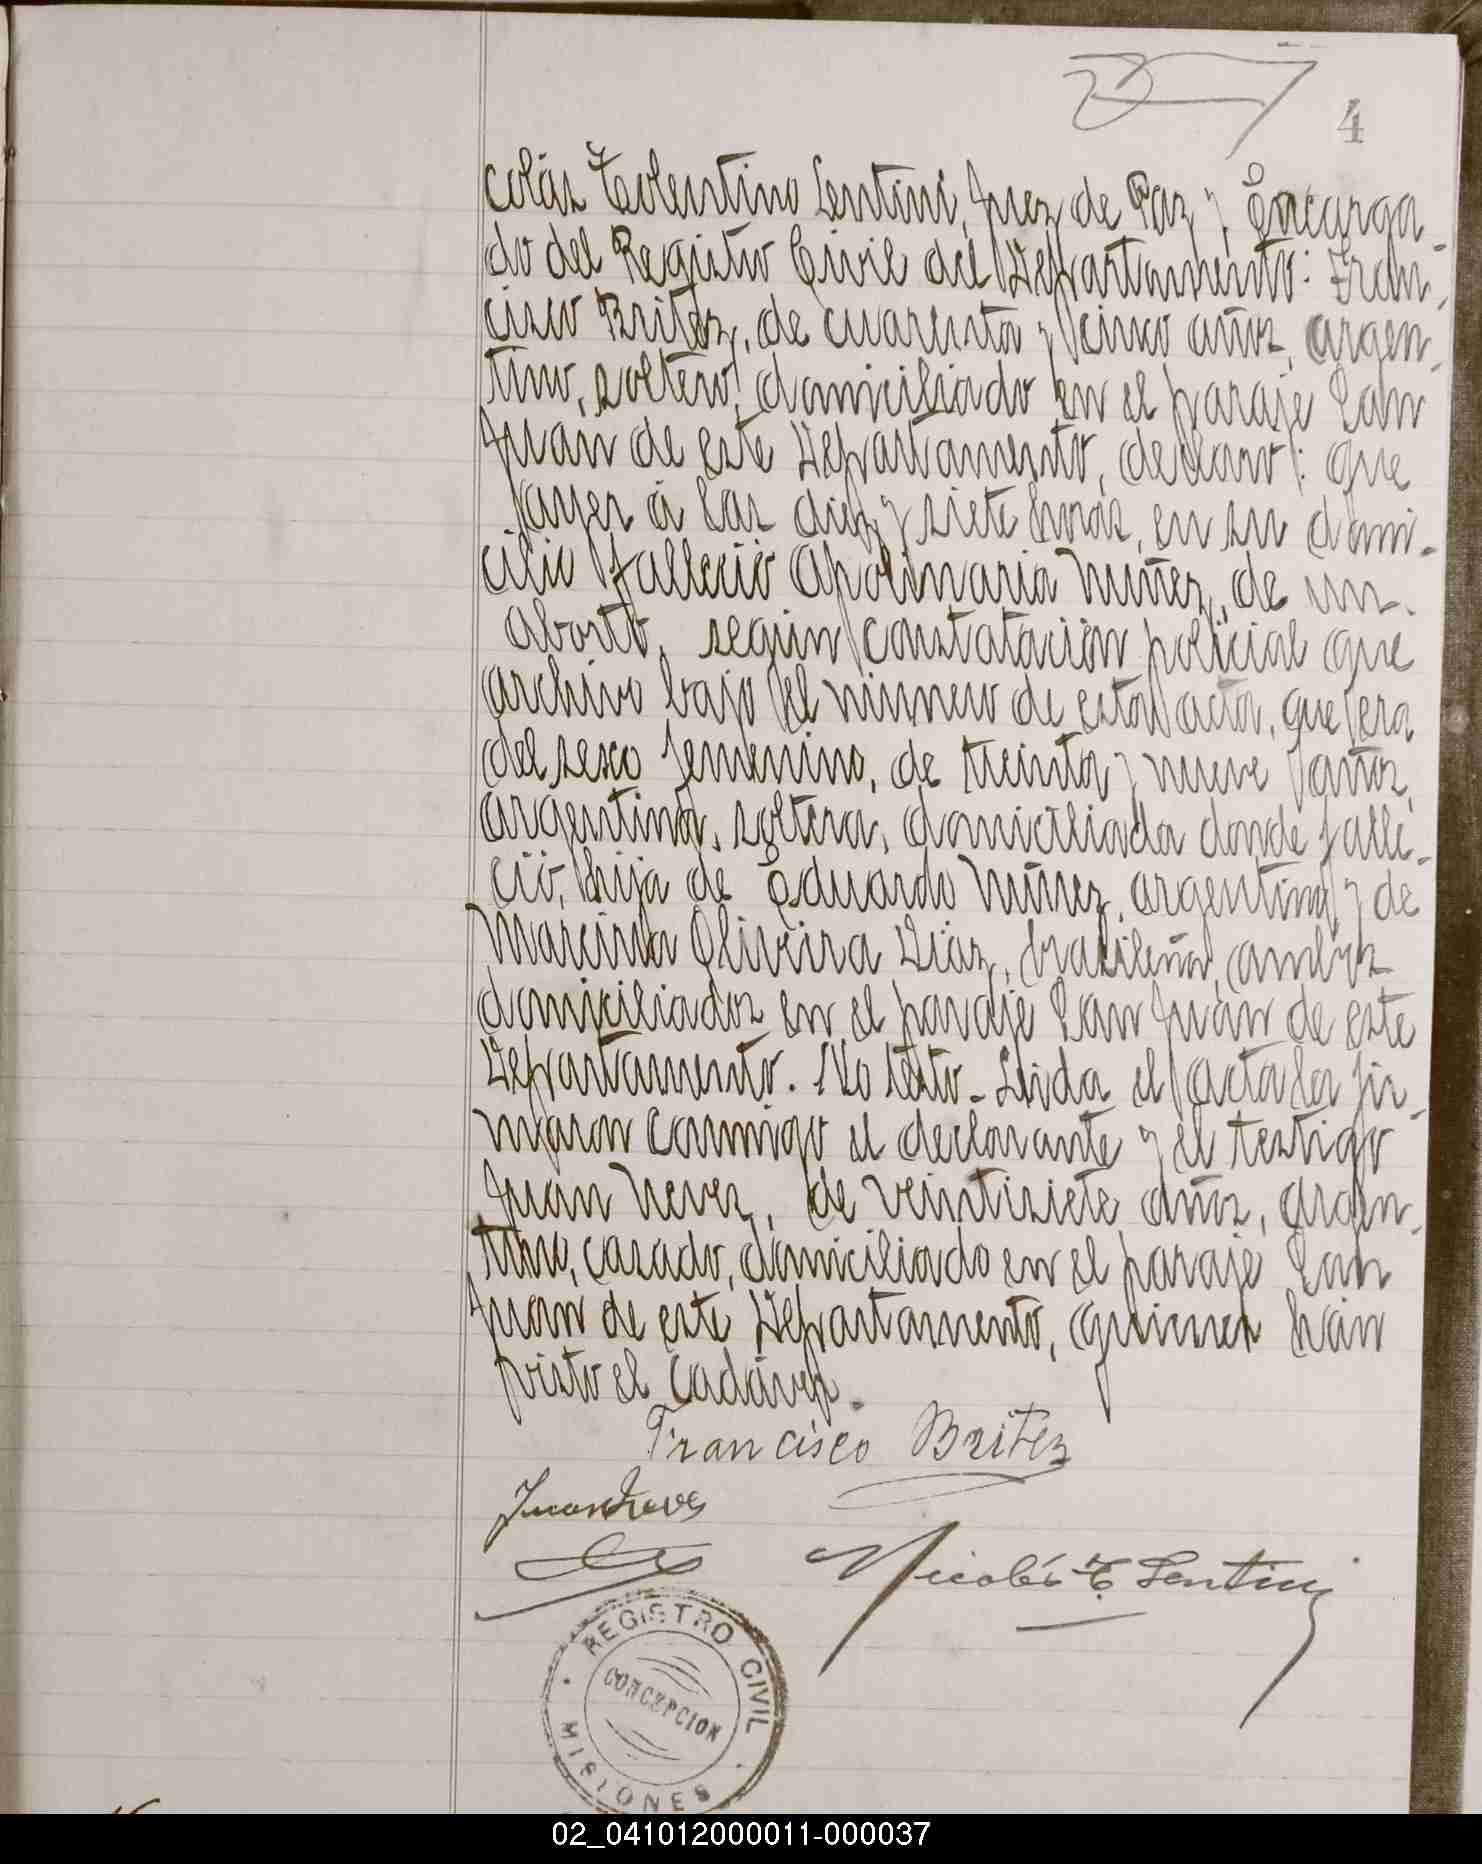 4
colás Tolentino Lentini, Juez de Paz y Encarga-
do del Registro Civil del Departamento: Fran-
cisco Britez, de cuarenta y cinco años, argen-
tino, soltero, domiciliado en el paraje San
Juan de este Departamento, declaró: que
ayer á las diez y siete horas, en su domi-
cilio falleció Apolinaria Nuñez, de un
aborto, según constatación policial que
archivo bajo el número de esta acta, que era
del sexo femenino, de treinta y nueve años,
argentina, soltera, domiciliada donde falle-
ció, hija de Eduardo Nuñez, argentino y de
Oliveira Diaz, brasileña, ambos
domiciliados en el paraje San Juan de este
Departamento. No testó_ Leida el acta la fir-
maron conmigo el declarante y el testigo
Juan Neves, de veintisiete años, argen-
tino, casado, domiciliado en el paraje San
Juan de este Departamento, quienes han
visto el cadáver.
Francisco Britez
Juan Neves
Nicolás T. Lentini
REGISTRO CIVIL
CONCEPCION
MISIONES
02_041012000011-000037